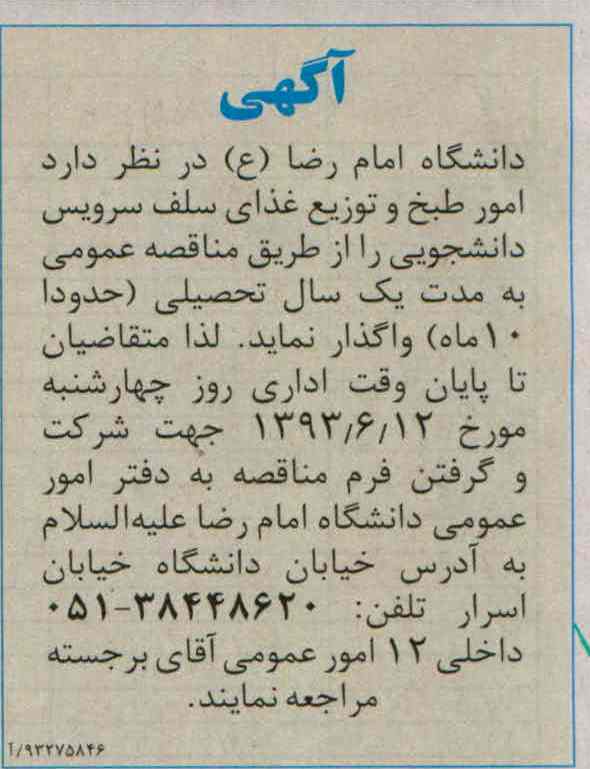 آگهی
دانشگاه امام رضا (ع) در نظر دارد
امور طبخ و توزیع غذای سلف سرویس
دانشجویی را از طریق مناقصه عمومی
به مدت یک سال تحصیلی (حدودا
۱۰ماه) واگذار نماید. لذا متقاضیان
تا پایان وقت اداری روز چهارشنبه
مورخ ۱۳۹۳/۶/۱۲ جهت شرکت
و گرفتن فرم مناقصه به دفتر امور
عمومی دانشگاه امام رضا علیه‌السلام
به آدرس خیابان دانشگاه خیابان
اسرار تلفن: ۳۸۴۴۸۶۲۰-۰۵۱
داخلی ۱۲ امور عمومی آقای برجسته
مراجعه نمایند.
۹۳۲۷۵۸۴۶/آ